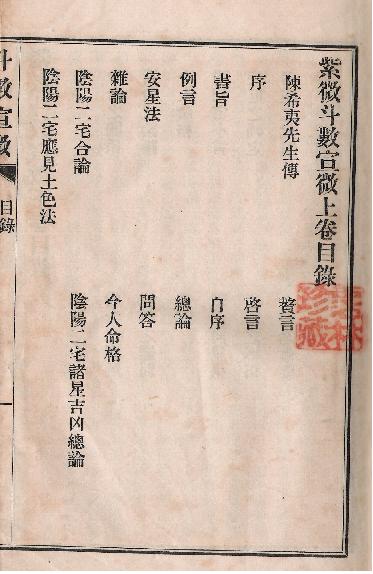 紫微斗數宣微上卷目錄
陳希夷先生傳
贅言
序
啓言
書旨
自序
例言
總論
安星法
問答
雜論
今人命格
陰陽二宅合論
陰陽二宅諸星吉凶總論
陰陽二宅應見土色法
斗數宣微
目錄
珍藏